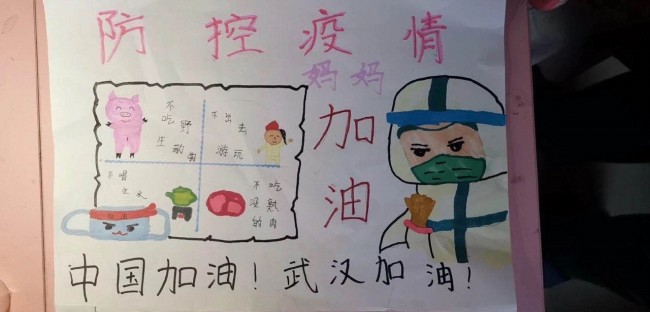 防控疫情
妈妈
加
油
不
吃野
生动物
不出去
游玩
不喝
生水
加油
不吃
没熟
的肉
中国加油！武汉加油！